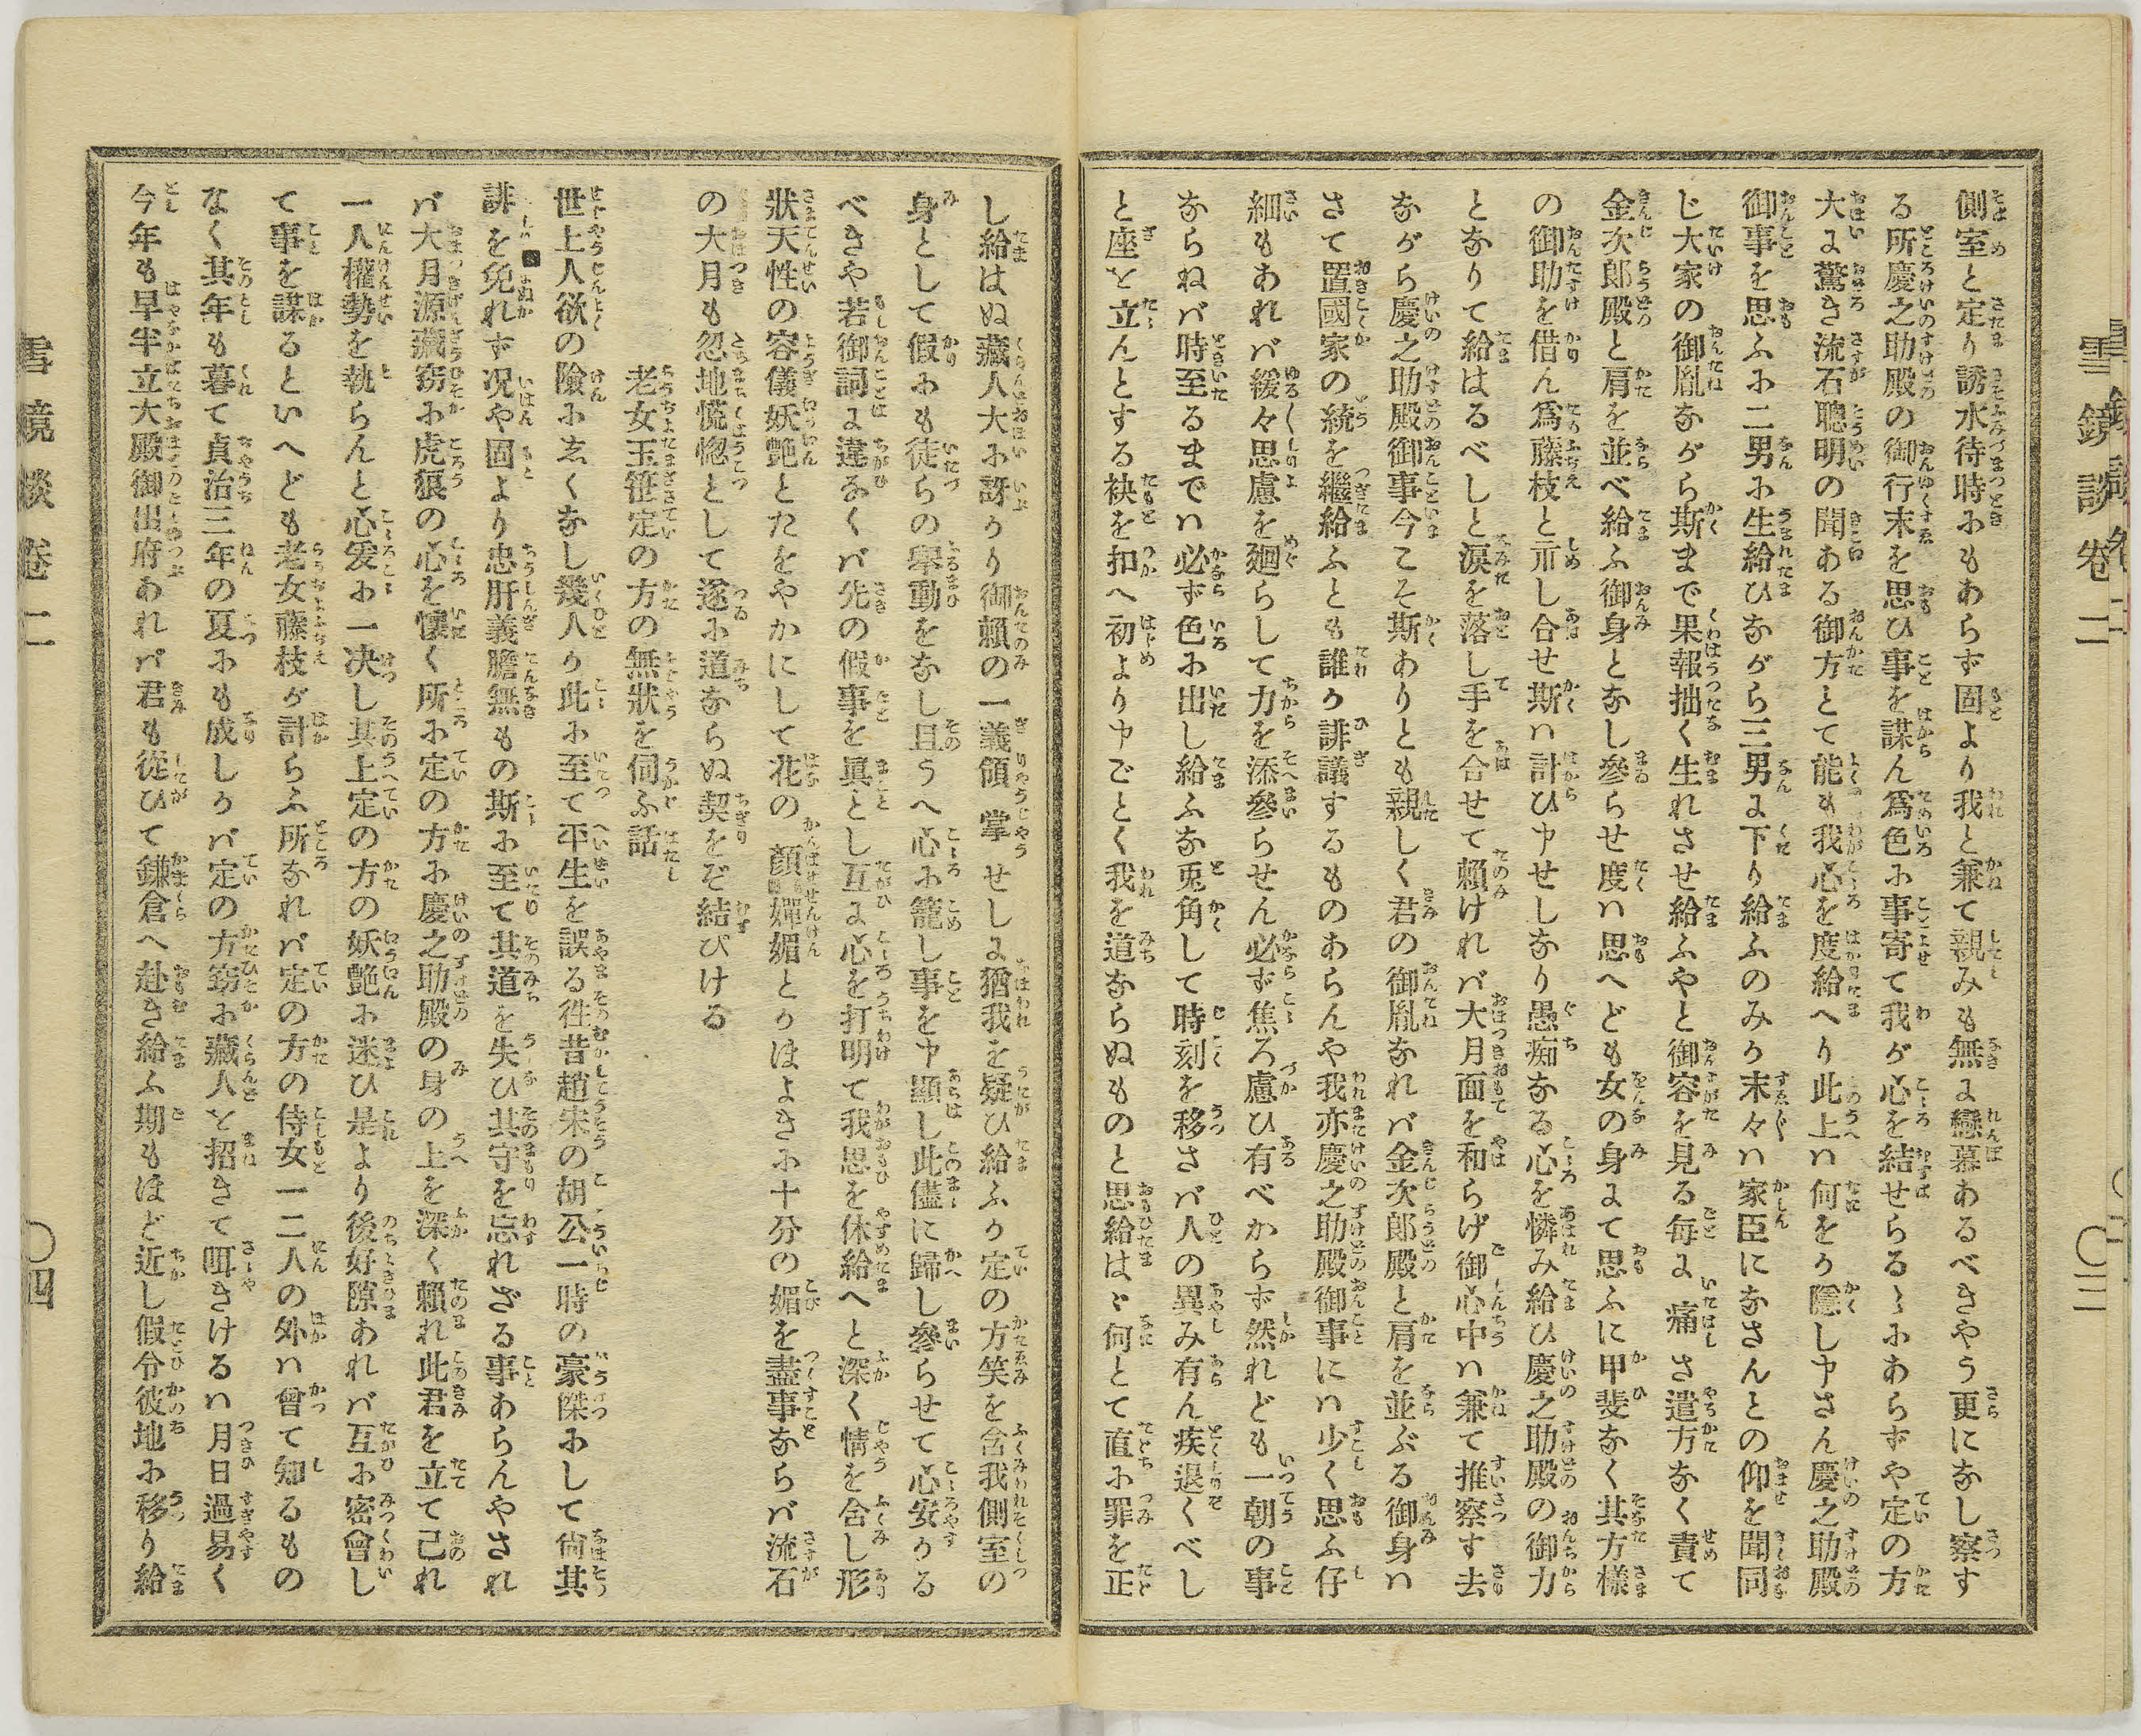 側室と定り誘水待時にもあらず固より我と兼て親みも無に戀慕あるべきやう更になし察す
る所慶之助殿の御行末を思ひ事を謀ん爲色に事寄て我が心を結せらるゝにあらずや定の方
大に驚き流石聰明の聞ある御方とて能も我心を度給へり此上ハ何をか隱し申さん慶之助殿
御事を思ふに二男に生給ひながら三男に下り給ふのみか末々ハ家臣になさんとの仰を聞同
じ大家の御胤ながら斯まで果報拙く生れさせ給ふやと御容を見る毎に痛さ遣方なく責て
金次郎殿と肩を並べ給ふ御身となし參らせ度ハ思へども女の身にて思ふに甲斐なく其方樣
の御助を借ん爲藤枝と示し合せ斯ハ計ひ申せしなり愚痴なる心を憐み給ひ慶之助殿の御力
となりて給はるべしと涙を落し手を合せて頼ければ大月面を和らげ御心中ハ兼て推察す去
ながら慶之助殿御事今こそ斯ありとも親しく君の御胤なれバ金次郎殿と肩を並ぶる御身ハ
さて置國家の統を繼給ふとも誰か誹議するものあらんや我亦慶之助殿御事にハ少く思ふ仔
細もあれバ緩々思慮を廻らして力を添參らせん必ず焦ろ慮ひ有べからず然れども一朝の事
ならねバ時至るまでハ必ず色に出し給ふな兎角して時刻を移さバ人の異み有ん疾退くべし
と座を立んとする袂を扣へ初より申ごとく我を道ならぬものと思給はゞ何とて直に罪を正
し給はぬ藏人大に訝かり御頼の一義領掌せしに猶我を疑ひ給ふか定の方笑を含我側室の
身として假にも徒らの擧動をなし且うへ心に籠し事を申顯し此儘に歸し參らせて心安かる
べきや若御詞に違なくバ先の假事を眞とし互に心を打明て我思を休給へと深く情を含し形
狀天性の容儀妖艶とたをやかにして花の顏嬋媚とかはよきに十分の媚を盡事ならバ流石
の大月も忽地慌惚として遂に道ならぬ契をぞ結びける
老女玉笹定の方の無狀を伺ふ話
世上人欲の險にゑくなし幾人か此に至て平生を誤る徃昔趙宋の胡公一時の豪傑にして尙其
誹を免れず况や固より忠肝義膽無もの斯に至て其道を失ひ其守を忘れざる事あらんやされ
バ大月源藏窈に虎狼の心を懷く所に定の方に慶之助殿の身の上を深く頼れ此君を立て己れ
一人權勢を執らんと心爰に一决し其上定の方の妖艶に迷ひ是より後好隙あれバ互に密會し
て事を謀るといへども老女藤枝が計らふ所なれバ定の方の侍女一二人の外ハ曾て知るもの
なく其年も暮て貞治三年の夏にも成しかバ定の方窈に藏人を招きて咡きけるハ月日過易く
今年も早半立大殿御出府あれバ君も從ひて鎌倉へ赴き給ふ期もほど近し假令彼地に移り給
雪鏡談卷二
〇三
雪鏡談卷二
〇四